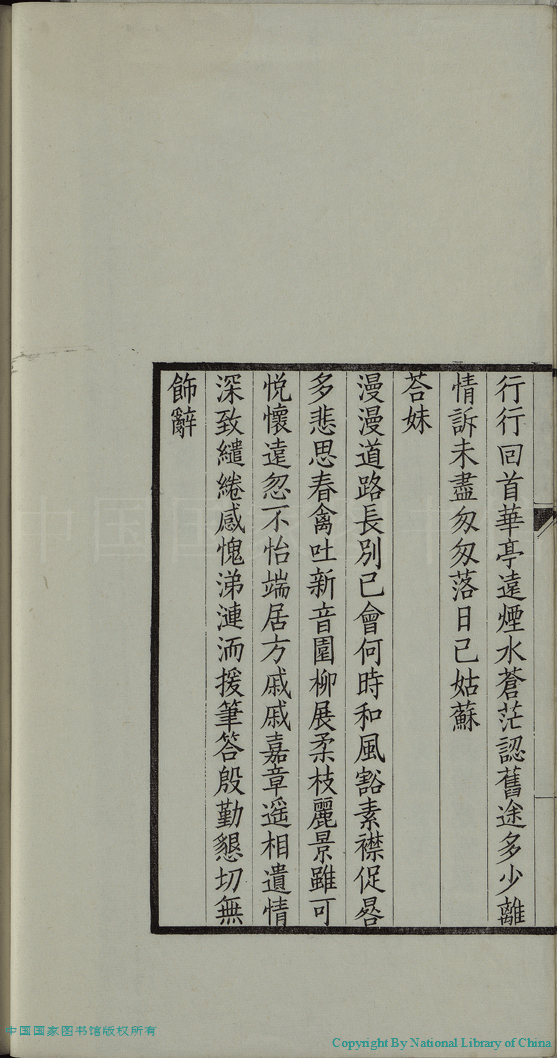 行行回首華亭遠煙水蒼茫認舊途多少離
情訴未盡匆匆落日已姑蘇
荅妹
漫漫道路長別已會何時和風豁素襟促晷
多悲思春禽吐新音園柳展柔枝麗景雖可
悅懷遠忽不怡端居方戚戚嘉章遥相遺情
深致繾綣感愧涕漣洏援筆答殷勤懇切無
飾辭
中国国家图书馆版权所有
Copyright By National Library of China